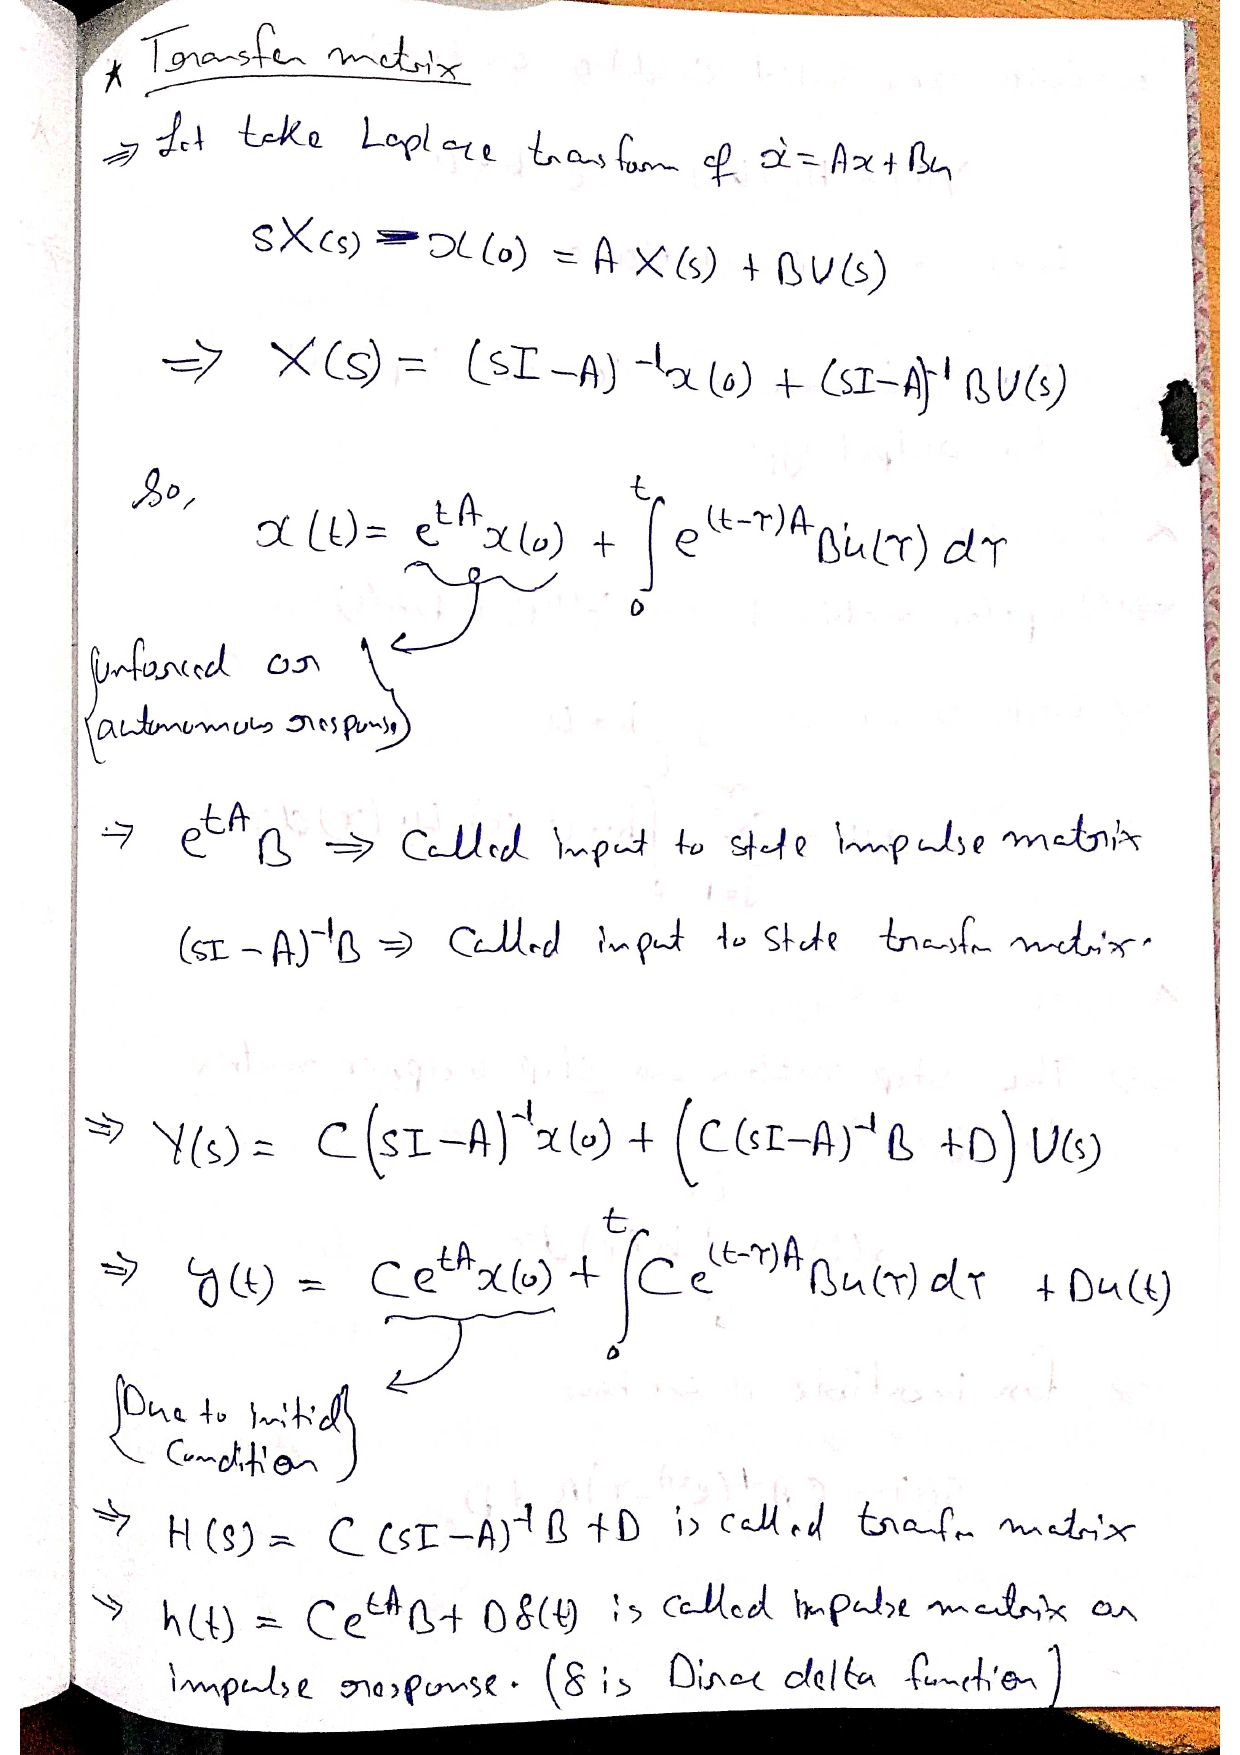 * Transfer matrix
⇒ Let take Laplace transform of ẋ = Ax + Bu
sX(s) − x(0) = A X(s) + BU(s)
⇒ X(s) = (sI − A)⁻¹x(0) + (sI − A)⁻¹ BU(s)
So,
x(t) = e^{tA} x(0) + ∫₀ᵗ e^{(t−τ)A} Bu(τ) dτ
{unforced or
autonomous response}
⇒ e^{tA} B ⇒ Called input to state impulse matrix
(sI − A)⁻¹B ⇒ Called input to state transfer matrix.
⇒ Y(s) = C(sI − A)⁻¹x(0) + (C(sI − A)⁻¹B + D) U(s)
⇒ y(t) = Ce^{tA}x(0) + ∫₀ᵗ Ce^{(t−τ)A} Bu(τ) dτ + Du(t)
{Due to initial
Condition}
⇒ H(s) = C(sI − A)⁻¹B + D is called transfer matrix
⇒ h(t) = Ce^{tA}B + Dδ(t) is called impulse matrix or
impulse response. (δ is Dirac delta function)